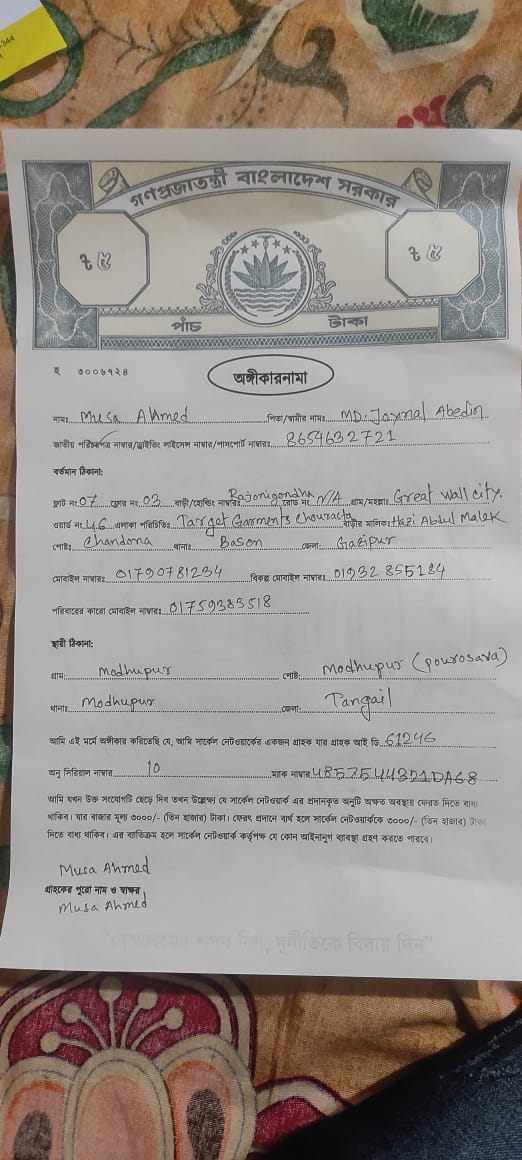 344
গণপ্রজাতন্ত্রী বাংলাদেশ সরকার
৳ ৫ ৳ ৫
পাঁচ টাকা
হ ৩০০৬৭২৪
অঙ্গীকারনামা
নামঃ Musa Ahmed পিতা/স্বামীর নামঃ MD. Joynal Abedin
জাতীয় পরিচয়পত্র নাম্বার/ড্রাইভিং লাইসেন্স নাম্বার/পাসপোর্ট নাম্বারঃ 8654632721
বর্তমান ঠিকানা:
ফ্লাট নং 07 ফ্লোর নং 03 বাড়ী/হোল্ডিং নাম্বারঃ Rajonigondha রোড নং N/A গ্রাম/মহল্লাঃ Great wall city.
ওয়ার্ড নং 46 এলাকা পরিচিতিঃ Target Garments Chourasta বাড়ীর মালিকঃ Hazi Abdul Malek
পোষ্টঃ Chandona থানাঃ Bason জেলাঃ Gazipur
মোবাইল নাম্বারঃ 01790781234 বিকল্প মোবাইল নাম্বারঃ 01932855184
পরিবারের কারো মোবাইল নাম্বারঃ 01759383518
স্থায়ী ঠিকানা:
গ্রাম: Modhupur পোষ্ট: Modhupur (pourosava)
থানাঃ Modhupur জেলা: Tangail
আমি এই মর্মে অঙ্গীকার করিতেছি যে, আমি সার্কেল নেটওয়ার্কের একজন গ্রাহক যার গ্রাহক আই ডি 61246
অনু সিরিয়াল নাম্বার 10 ম্যাক নাম্বার 4857544321DA68
আমি যখন উক্ত সংযোগটি ছেড়ে দিব তখন উল্লেক্ষ্য যে সার্কেল নেটওয়ার্ক এর প্রদানকৃত অনুটি অক্ষত অবস্থায় ফেরত দিতে বাধ্য
থাকিব। যার বাজার মূল্য ৩০০০/- (তিন হাজার) টাকা। ফেরৎ প্রদানে ব্যর্থ হলে সার্কেল নেটওয়ার্ককে ৩০০০/- (তিন হাজার) টাকা
দিতে বাধ্য থাকিব। এর ব্যতিক্রম হলে সার্কেল নেটওয়ার্ক কর্তৃপক্ষ যে কোন আইনানুগ ব্যবস্থা গ্রহণ করতে পারবে।
Musa Ahmed
গ্রাহকের পুরো নাম ও স্বাক্ষর
Musa Ahmed
"দেশপ্রেমের শপথ নিন, দুর্নীতিকে বিদায় দিন"